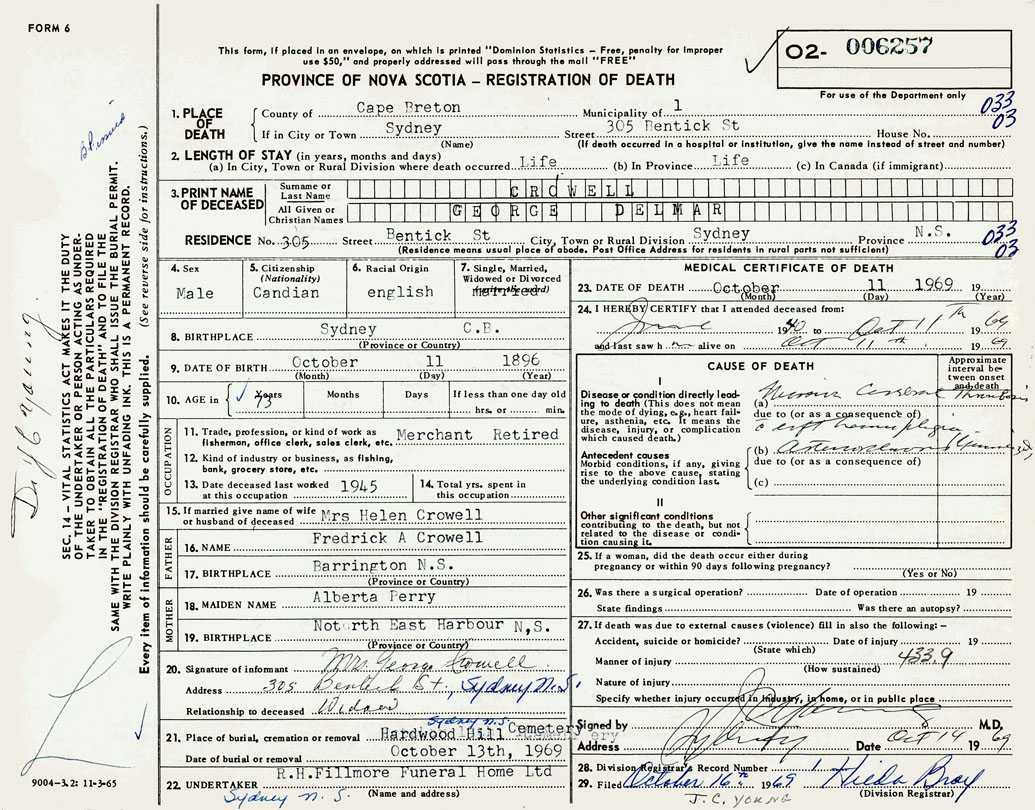 FORM 6
This form, if placed in an envelope, on which is printed "Dominion Statistics – Free, penalty for improper
use $50," and properly addressed will pass through the mail "FREE"
O2- 006257
For use of the Department only
PROVINCE OF NOVA SCOTIA – REGISTRATION OF DEATH
033
03
1. PLACE OF DEATH
County of Cape Breton Municipality of 1
If in City or Town Sydney Street 305 Bentick St House No.
(Name) (If death occurred in a hospital or institution, give the name instead of street and number)
2. LENGTH OF STAY (in years, months and days)
(a) In City, Town or Rural Division where death occurred Life (b) In Province Life (c) In Canada (if immigrant)
3. PRINT NAME OF DECEASED
Surname or Last Name CROWELL
All Given or Christian Names GEORGE DELMAR
RESIDENCE No. 305 Street Bentick St City, Town or Rural Division Sydney Province N.S.
(Residence means usual place of abode. Post Office Address for residents in rural parts not sufficient)
033
03
4. Sex
Male
5. Citizenship
(Nationality)
Candian
6. Racial Origin
english
7. Single, Married,
Widowed or Divorced
(write the word)
married
8. BIRTHPLACE Sydney C.B.
(Province or Country)
9. DATE OF BIRTH October 11 1896
(Month) (Day) (Year)
10. AGE in Years Months Days If less than one day old
73 hrs. or min.
OCCUPATION
11. Trade, profession, or kind of work as
fisherman, office clerk, sales clerk, etc. Merchant Retired
12. Kind of industry or business, as fishing,
bank, grocery store, etc.
13. Date deceased last worked
at this occupation 1945
14. Total yrs. spent in
this occupation
15. If married give name of wife
or husband of deceased Mrs Helen Crowell
FATHER
16. NAME Fredrick A Crowell
17. BIRTHPLACE Barrington N.S.
(Province or Country)
MOTHER
18. MAIDEN NAME Alberta Perry
19. BIRTHPLACE Notorth East Harbour N,S.
(Province or Country)
20. Signature of informant Mrs. George Crowell
Address 305 Bentick St., Sydney N.S.
Relationship to deceased Widow
Sydney N.S.
21. Place of burial, cremation or removal Hardwood Hill Cemetery
Date of burial or removal October 13th, 1969
22. UNDERTAKER R.H.Fillmore Funeral Home Ltd
Sydney N. S. (Name and address)
MEDICAL CERTIFICATE OF DEATH
23. DATE OF DEATH October 11 1969 19
(Month) (Day) (Year)
24. I HEREBY CERTIFY that I attended deceased from:
19 40 to Oct 11th 19 69
and last saw h alive on Oct 11th 19 69
CAUSE OF DEATH
Approximate
interval be-
tween onset
and death
I
Disease or condition directly lead-
ing to death (This does not mean
the mode of dying, e.g., heart fail-
ure, asthenia, etc. It means the
disease, injury, or complication
which caused death.)
(a) Thrombosis
due to (or as a consequence of)
Antecedent causes
Morbid conditions, if any, giving
rise to the above cause, stating
the underlying condition last.
(b)
due to (or as a consequence of)
(c)
II
Other significant conditions
contributing to the death, but not
related to the disease or condi-
tion causing it.
25. If a woman, did the death occur either during
pregnancy or within 90 days following pregnancy?
(Yes or No)
26. Was there a surgical operation? Date of operation 19
State findings Was there an autopsy?
27. If death was due to external causes (violence) fill in also the following: –
Accident, suicide or homicide? Date of injury 19
(State which)
433.9
Manner of injury
(How sustained)
Nature of injury
Specify whether injury occurred in industry, in home, or in public place
Signed by M.D.
Address Sydney Date Oct 14 19 69
28. Division Registrar's Record Number
29. Filed October 16th 1969 Hilda Bray
(Division Registrar)
J.C. YOUNG
SEC. 14 – VITAL STATISTICS ACT MAKES IT THE DUTY
OF THE UNDERTAKER OR PERSON ACTING AS UNDER-
TAKER TO OBTAIN ALL THE PARTICULARS REQUIRED
IN THE "REGISTRATION OF DEATH" AND TO FILE THE
SAME WITH THE DIVISION REGISTRAR WHO SHALL ISSUE THE BURIAL PERMIT.
WRITE PLAINLY WITH UNFADING INK. THIS IS A PERMANENT RECORD.
Every item of information should be carefully supplied. (See reverse side for instructions.)
9004–3.2: 11-3-65